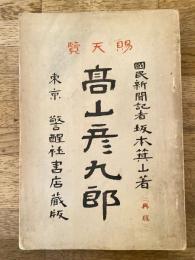 賜天覽
國民新聞記者坂本箕山著
再版
髙山彦九郎
東京 警醒社書店藏版